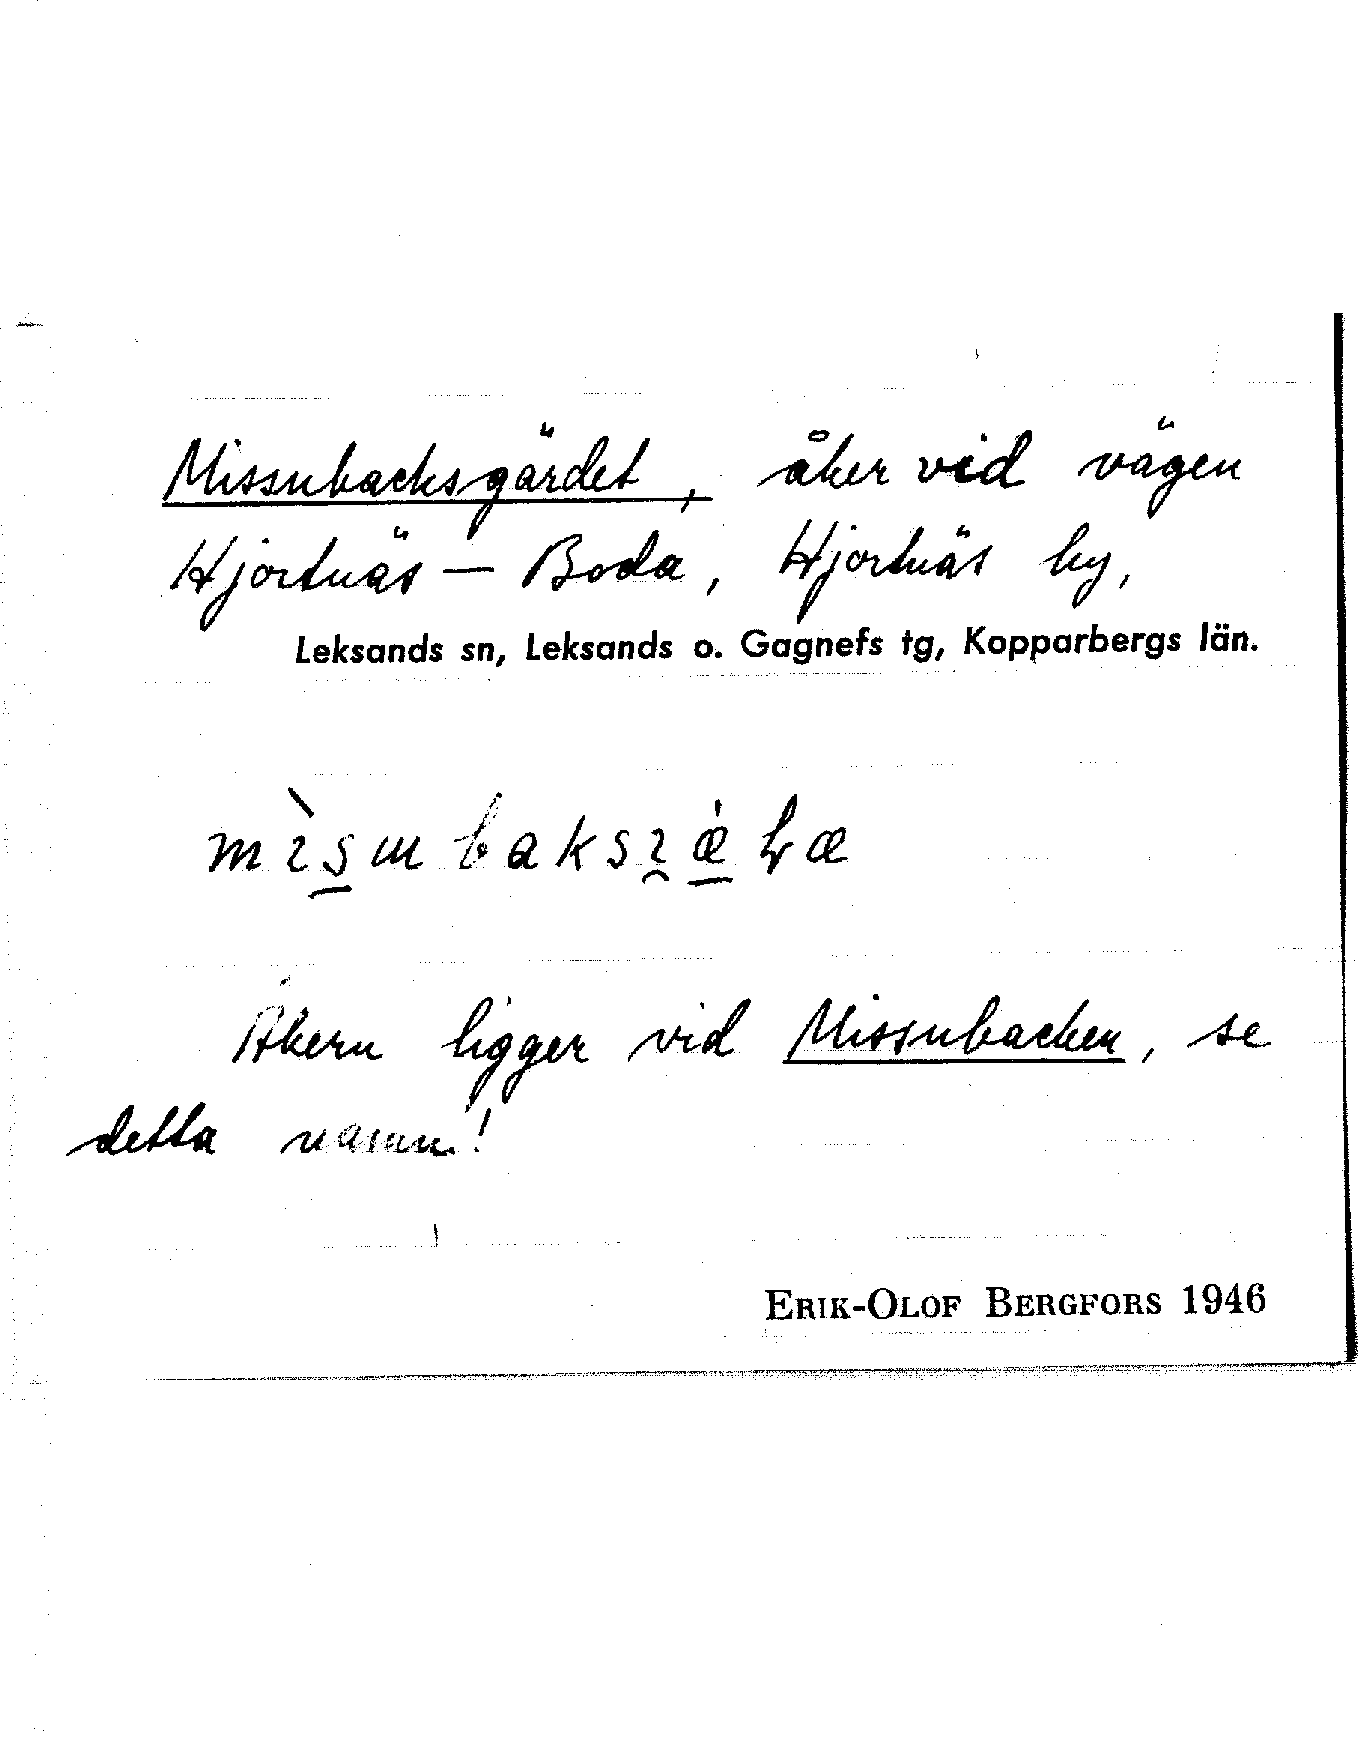 Missubacksgärdet, åker vid vägen
Hjortnäs – Boda, Hjortnäs by,
Leksands sn, Leksands o. Gagnefs tg, Kopparbergs län.
Åkern ligger vid Missubacken, se
detta namn!
ERIK-OLOF BERGFORS 1946